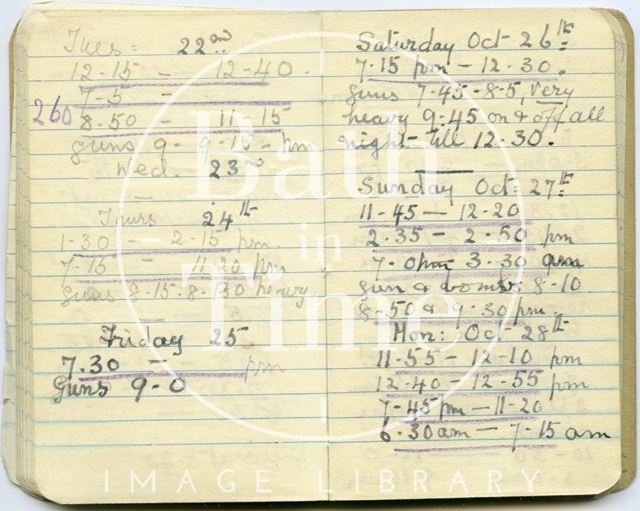 Tues = 22nd
12-15 - 12-40.
7-5 -
260
8-50 - 11-15
guns 9- 9-15- pm
Wed. 23rd
Thurs 24th
1-30 - 2-15 pm.
7.15 - 11-20 pm
Guns 8-15-8-30 heavy
Friday 25.
7.30 - pm
Guns 9-0
Saturday Oct 26th
7.15 pm - 12.30.
guns 7-45-8-5, very
heavy 9.45 on & off all
night till 12.30.
Sunday Oct= 27th
11-45 - 12-20
2.35 - 2.50 pm
7.0pm 3.30 am
gun & bombs 8-10
8.50 & 9.30 pm.
Mon: Oct - 28th
11-55 - 12-10 pm
12-40 - 12-55 pm
7-45 pm - 11-20
6.30am - 7-15 am
Bath
in
Time
IMAGE LIBRARY